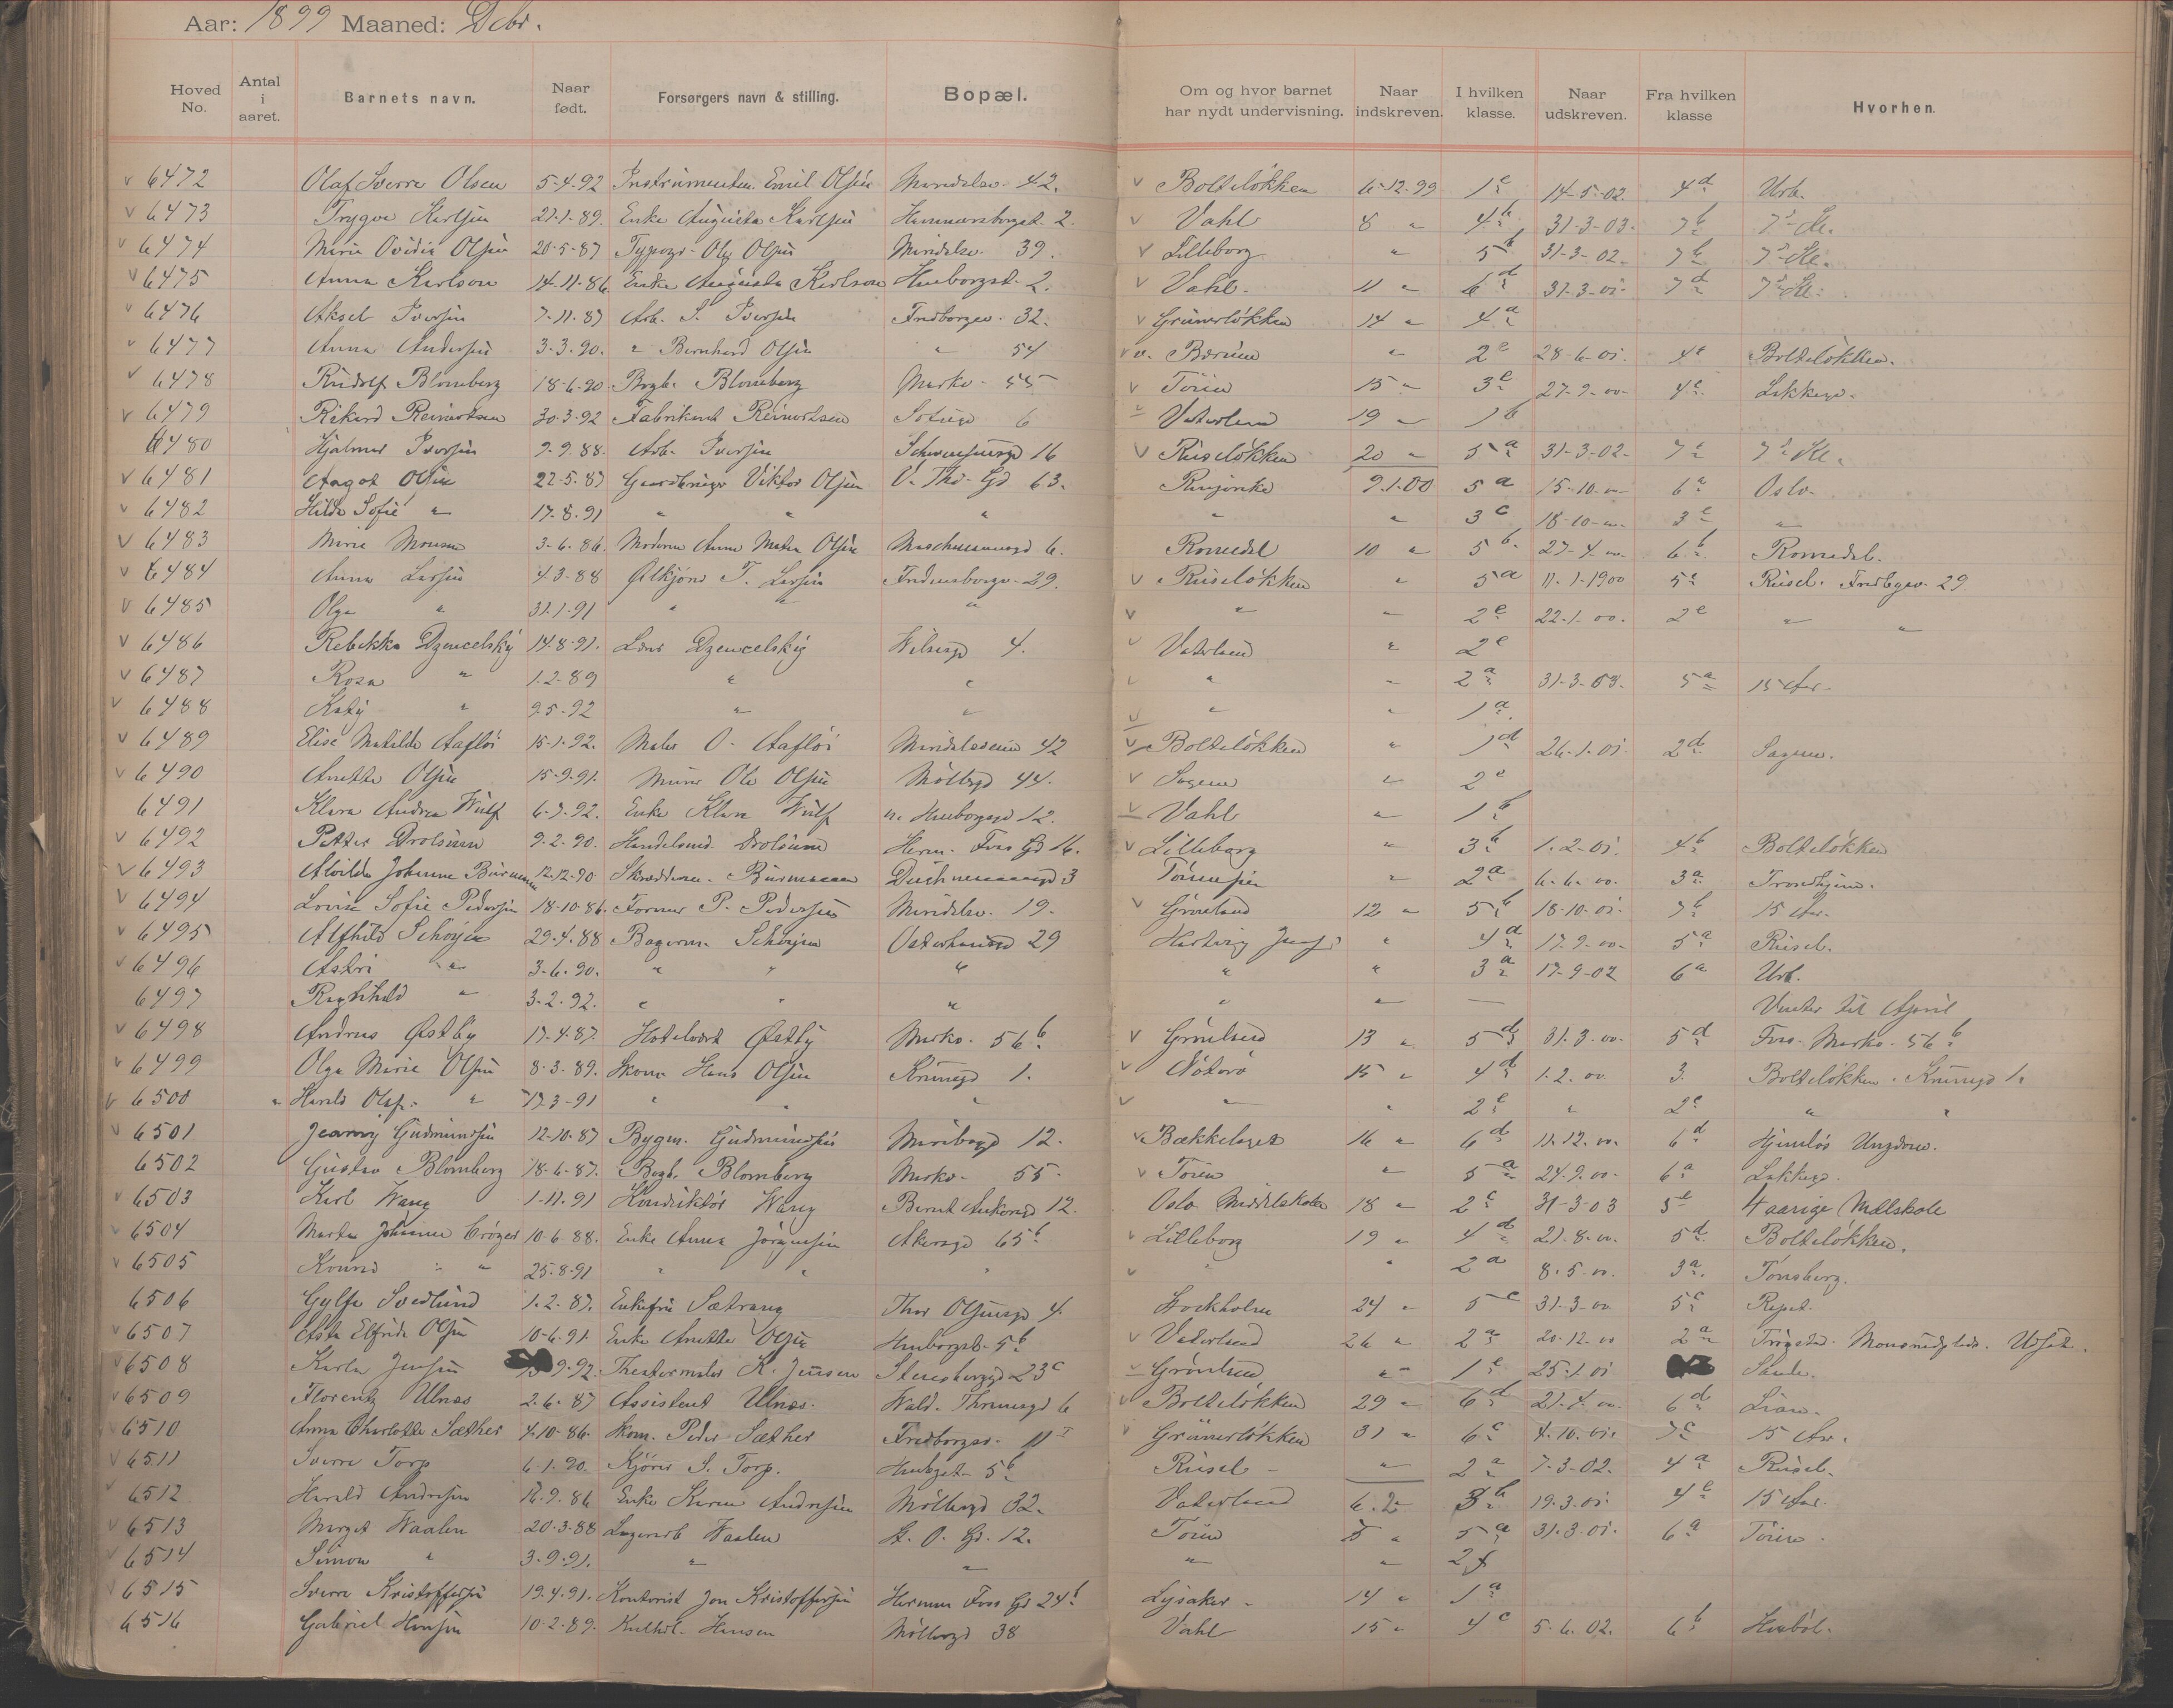 Aar: 1899 Maaned: Debr.
Hoved No. Antal i aaret. Barnets navn. Naar født. Forsørgers navn & stilling. Bopæl. Om og hvor barnet har nydt undervisning. Naar indskreven. I hvilken klasse. Naar udskreven. Fra hvilken klasse Hvorhen.
6472 Olaf Sverre Olsen 5-4-92 Instrumentm. Emil Olsen Maridalsv. 42. Bolteløkken 6-12-99 1e 14-5-02. 4d Urb.
6473 Trygve Karlsen 27-1-89. Enke Augusta Karlsen Hammersborgst. 2. Vahl 8 " 4b 31-3-03. 7b 7de Kl.
6474 Marie Ovidia Olsen 20-5-87 Typogr. Olsen Maridalsv. 39. Lilleborg " 5b 31-3-02. 7b 7de Kl.
6475 Anna Karlson 14-11-86. Enke Augusta Karlson Hmborgst. 2. Vahl. 11 " 6d 31-3-01. 7d 7de Kl.
6476 Aksel Iversen 7-11-87 Arb. S. Iversen Fredborgv. 32. Grünerløkken 14 " 4a
6477 Anna Andersen 3-3-90. " Bernhard Olsen " 54 v. Bærum " 2e 28-6-01. 4e Bolteløkken.
6478 Rudolf Blomberg 18-6-90 Bogh. Blomberg Markv. 55 Tøien 15 " 3e 27-9-00. 4e Lakkegd.
6479 Rikard Reinertsen 30-3-92 Fabrikant Reinertsen 6 Vaterland 19 " 1b
6480 Hjalmar Iversen 9-9-88. Arb. Iversen Schwensensgd 16 Ruseløkken 20 " 5a 31-3-02. 7a 7de Kl.
6481 Aagot Olsen 22-5-87 Viktor Olsen V. Thr. Gd 63. 9.1.00 5a 15-10-00 6a Oslo.
6482 Hilda Sofie " 17-8-91 " " " " " 3c 18-10-00. 3c "
6483 Marie Monsen 3-6-86. Moderen Anne Olsen 6. Romedal 10 " 5b. 27-4-00. 6b Romedal.
6484 Anna Larsen 4-3-88 Ølkjører T. Larsen Fredensborgv. 29. Ruseløkken " 5a 11-1-1900 5a Rusel. Fredbgv. 29
6485 Olga " 31-1-91 " " " " " 2e 22-1-00. 2e " "
6486 Rebekka Dzencelsky 14-8-91. Dzencelsky Wilsesgd 4. Vaterland " 2e
6487 Rosa " 1-2-89 " " " " 2a 31-3-03. 5a 15 Aar.
6488 Katy " 9-5-92 " " " " 1a.
6489 Elise Matilde Aafløi 15-1-92. Maler O. Aafløi Maridalsveien 42 Bolteløkken " 1d 26-1-01. 2d Sagene.
6490 Anette Olsen 15-9-91. Murer Ole Olsen Møllergd 44. Sagene " 2e
6491 Klara Andrea Wulf 6-7-92. Enke Klara Wulf Hmborgsgd 12. Vahl " 1b
6492 Petter Drolsum 9-2-90. Handelsmd. Drolsum Herm. Foss Gd 16. Lilleborg " 3b 1-2-01. 4b Bolteløkken
6493 Alvilda Johanne Burmann 12-12-90 Skrædderm. Burmann Deichmannsgd 3 " 2a 6-6-00. 3a Trondhjem.
6494 Lovise Sofie Pedersen 18-10-86. Former P. Pedersen Maridalsv. 19. Grønland 12 " 5b 18-10-01. 7b 15 Aar.
6495 Alfhild Schøyen 29-4-88 Bagerm. Schøyen Osterhausgd 29 " 4d 17-9-00. 5a Rusel.
6496 Astri " 3-6-90. " " " " " 3a 17-9-02 6a Urb.
6497 Ragnhild " 3-2-92. " " " " " — Venter til April
6498 Andreas Østby 17-4-87. Hotelvært Østby Markv. 56b Grønland 13 " 5d 31-3-00. 5d Foss. Markv. 56b
6499 Olga Marie Olsen 8-3-89. Skom. Hans Olsen Krumgd 1. Nøterø 15 " 4d 1-2-00. 3. Bolteløkken. Krumgd 1.
6500 Harald Olaf " 17-3-91 " " " " " 2e " 2e " "
6501 Jeanny Gudmundsen 12-10-87 Bygm. Gudmundsen Maribogd 12. Bækkelaget 16 " 6d 11-12-00. 6d Hjemløs Ungdom.
6502 Gustav Blomberg 18-6-87. Bogh. Blomberg Markv. 55. Tøien " 5a 24-9-00. 6a Lakkegd.
6503 Karl Wang 1-11-91 Konduktør Wang Bernt Ankersgd 12. Oslo Middelskole 18 " 2c 31-3-03 5e 4 aarige Mdlskole
6504 Marta Johanne Crøger 10-6-88. Enke Anna Jørgensen Akersgd 65b Lilleborg 19 " 4d 21-8-00. 5d Bolteløkken.
6505 Konrad " " 25-8-91 " " " " " 2a 8-5-00. 3a. Tønsberg.
6506 Gylfe Svedlund 1-2-87. Enkefru Sætrang Thor Olsensgd 4. Stockholm 24 " 5c 31-3-00 5c Repet.
6507 Asta Elfrida Olsen 10-6-91. Enke Anette Olsen Hmborgst. 5b Vaterland 26 " 2a 20-12-00 2a Trøgstad. Udsat.
6508 Karla Jensen 9-92. Theatermaler K. Jensen Stensberggd 23c Grønland " 1e 25-1-01 Sande.
6509 Florentz Ulnæs 2-6-87 Assistent Ulnæs. Wald. Thranesgd 6 Bolteløkken 29 " 6d 21-4-00. 6d Lian.
6510 Anna Charlotte Sæther 4-10-86. Skom. Peder Sæther Fredborgsv. 11 Grünerløkken 31 " 6c 4-10-01. 7c 15 Aar.
6511 Sverre Torp 6-1-90. Kjører S. Torp. Hmbgst. 5b Rusel. " 2a 7-3-02. 4a Rusel.
6512 Harald Andresen 16-9-86 Enke Karen Andresen Møllergd 32. Vaterland 6.2 3b 19-3-01. 4e 15 Aar.
6513 Margot Waalen 20-3-88 Lagerarb Waalen St. O. Gd. 12. Tøien 8 " 5a 31-3-01. 6a Tøien.
6514 Simon " 3-9-91. " " " " 2f
6515 Sverre Kristoffersen 19-4-91. Kontorist Jon Kristoffersen Herman Foss Gd 24b Lysaker 14 " 1a
6516 Gabriel Hansen 10-2-89. Kulhdl. Hansen Møllergd 38 Vahl 15 " 4c 5-6-02. 6b